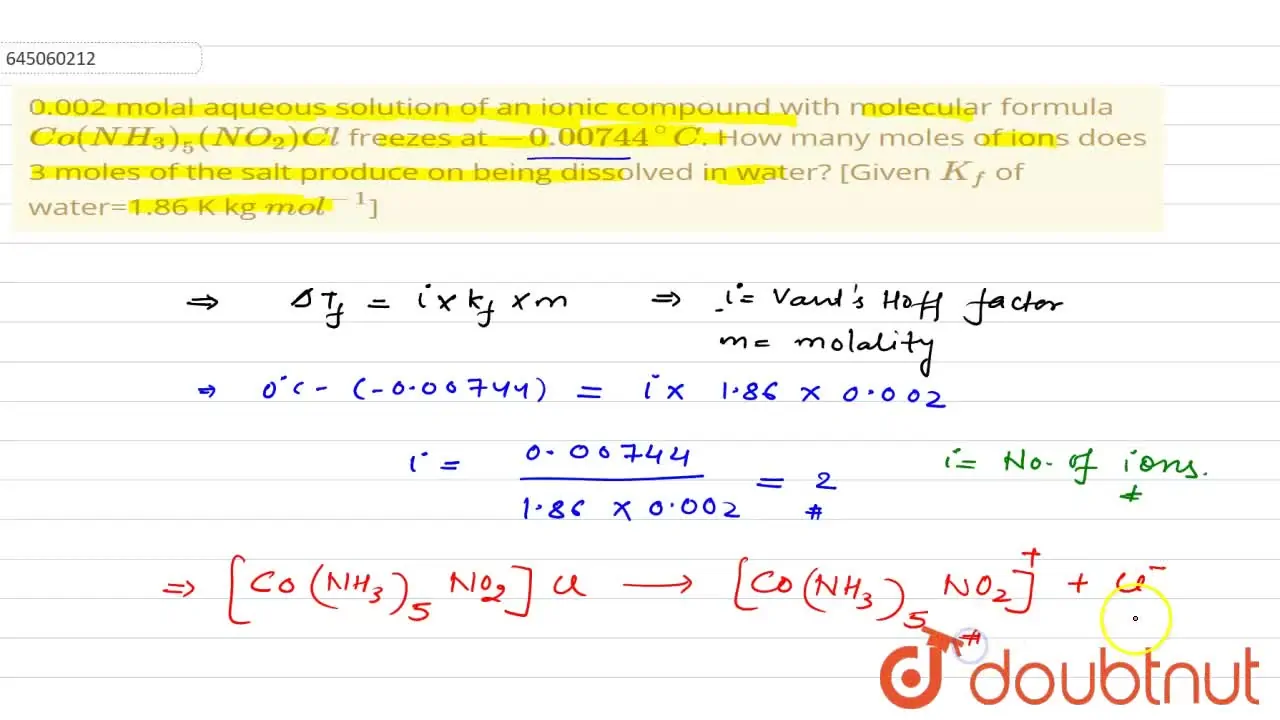 645060212
0.002 molal aqueous solution of an ionic compound with molecular formula
Co(NH₃)₅(NO₂)Cl freezes at −0.00744°C. How many moles of ions does
3 moles of the salt produce on being dissolved in water? [Given K_f of
water=1.86 K kg mol⁻¹]
⇒ ΔT_f = i × k_f × m ⇒ i = Vant's Hoff factor
m = molality
⇒ 0°C - (-0.00744) = i × 1.86 × 0.002
i = 0.00744 / 1.86 × 0.002 = 2 i = No. of ions.
⇒ [Co(NH₃)₅ NO₂] Cl ⟶ [Co(NH₃)₅ NO₂]⁺ + Cl⁻
doubtnut